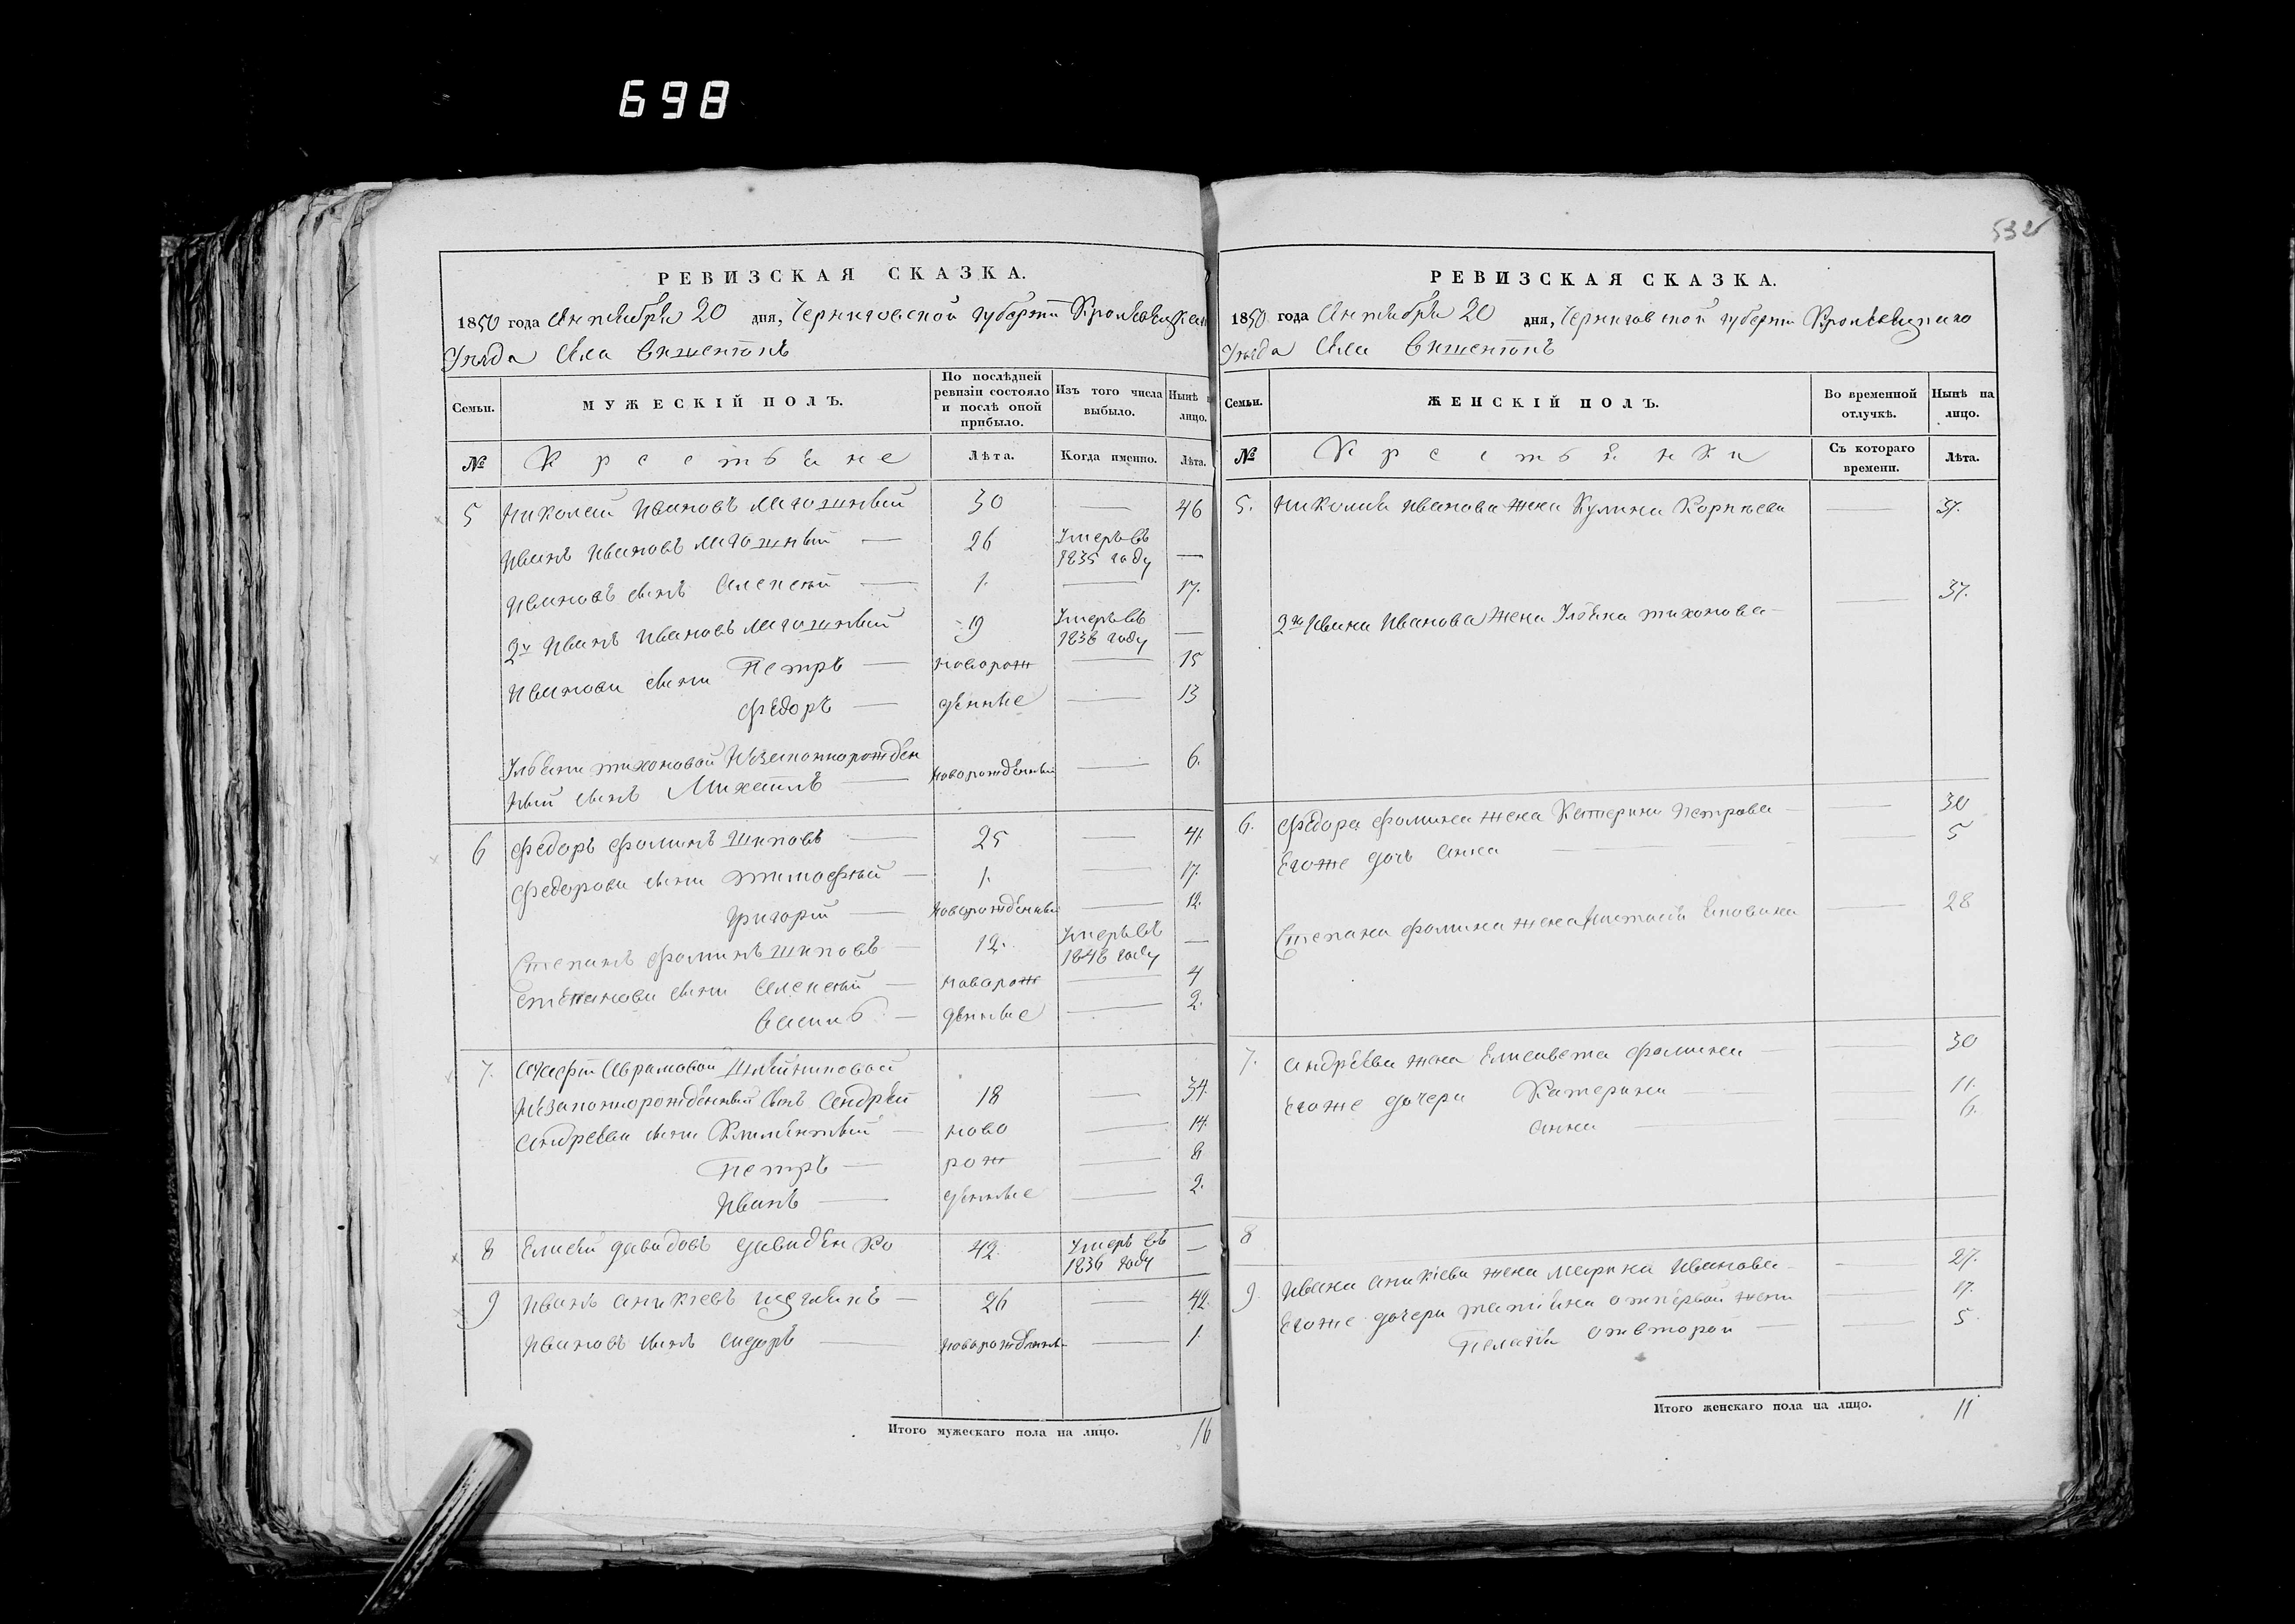 698
532
РЕВИЗСКАЯ СКАЗКА.
1850 года Октября 20 дня, Черниговской губерніи Кролевецкаго
Уезда Села
МУЖЕСКІЙ ПОЛЪ.
Семьи.
По послѣдней ревизіи состояло и послѣ оной прибыло.
Изъ того числа выбыло.
Нынѣ на лицо.
№ Крестьяне Лѣта. Когда именно. Лѣта.
5 Николай Ивановъ 30 — 46
Иванъ Ивановъ — 26 Умеръ въ 1835 году —
Ивановъ сынъ Алексей — 1. — 17.
2й Иванъ Ивановъ 19 Умеръ въ 1836 году —
Ивановы сыни Петръ — новорож — 15
Федоръ — денные — 13
Ульяни Тихоновой Незаконнорожден
ный сынъ Михаилъ — новорожденный — 6.
6 Федоръ Фоминъ Шиповъ — 25 — 41
Федоровы сыни Тимофей — 1. — 17.
Григорій — новорожденный — 12.
Степанъ Фоминъ Шиповъ — 12. Умеръ въ 1848 году —
Степановы сыни Алексей — новорож — 4
Василь — денные — 2.
7. Агафіи Аврамовой
Незаконнорожденный Сынъ Андрей 18 — 34.
Андреевы сыни Климентий — ново — 14.
Петръ — рож — 8
Иванъ — денные — 2.
8 Елисей Давидовъ Давиденко 42. Умеръ въ 1836 году —
9 Иванъ Аникіевъ — 26 — 42.
Ивановъ сынъ Сидоръ — новорожденны — 1.
Итого мужескаго пола на лицо. 16
РЕВИЗСКАЯ СКАЗКА.
1850 года Октября 20 дня, Черниговской губерніи Кролевецкаго
Уезда Села
Семьи.
ЖЕНСКІЙ ПОЛЪ.
Во временной отлучкѣ.
Нынѣ на лицо.
№ Крестьянки Съ котораго времени. Лѣта.
5. Николая Иванова жена Кулина Корнеева — 37.
2го Ивана Иванова жена Ульяна Тихонова — 37.
6. Федора Фомина жена Катерина Петрова — 30
Егоже дочь Анна — 5
Степана Фомина жена Настасія — 28
7. Андреева жена Елисавета Фомина — 30
Егоже дочери Катерина — 11.
Анна — 6.
8
9. Ивана Аникіева жена Марина Иванова — 27.
Егоже дочери Татіяна отпервой жены — 17.
Пелагія отвторой — 5.
Итого женскаго пола на лицо. 11